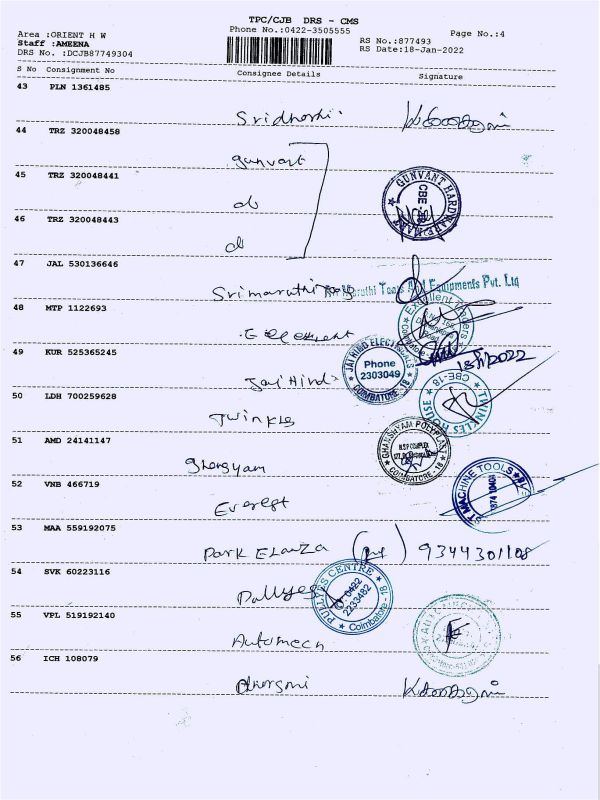 TPC/CJB DRS - CMS
Phone No.:0422-3505555
Page No.:4
Area :ORIENT H W
Staff :AMEENA
DRS No. :DCJB87749304
RS No.:877493
RS Date:18-Jan-2022
S No Consignment No Consignee Details Signature
43 PLN 1361485
44 TRZ 320048458
gunvant
GUNVANT HARDWARE MART
CBE-18
45 TRZ 320048441
do
46 TRZ 320048443
do
47 JAL 530136646
Srimaruthi Tools
Sri Maruthi Tools And Equipments Pvt. Ltd
48 MTP 1122693
Excellent Traders
49 KUR 525365245
Jai Hind
JAI HIND ELECTRICALS
Phone
2303049
COIMBATORE - 18
18/1/2022
50 LDH 700259628
Twinkles
TWINKLES HOUSE
CBE-18
51 AMD 24141147
Ghansyam
GHANSHYAM POLYPLAST
N.S.P COMPLEX
COIMBATORE - 18
52 VNB 466719
Everest
ST MACHINE TOOLS
53 MAA 559192075
Park Elanza
9344301108
54 SVK 60223116
Pullyes
PULLYES CENTRE
0422
2233482
Coimbatore - 18
55 VPL 519192140
Automech
56 ICH 108079